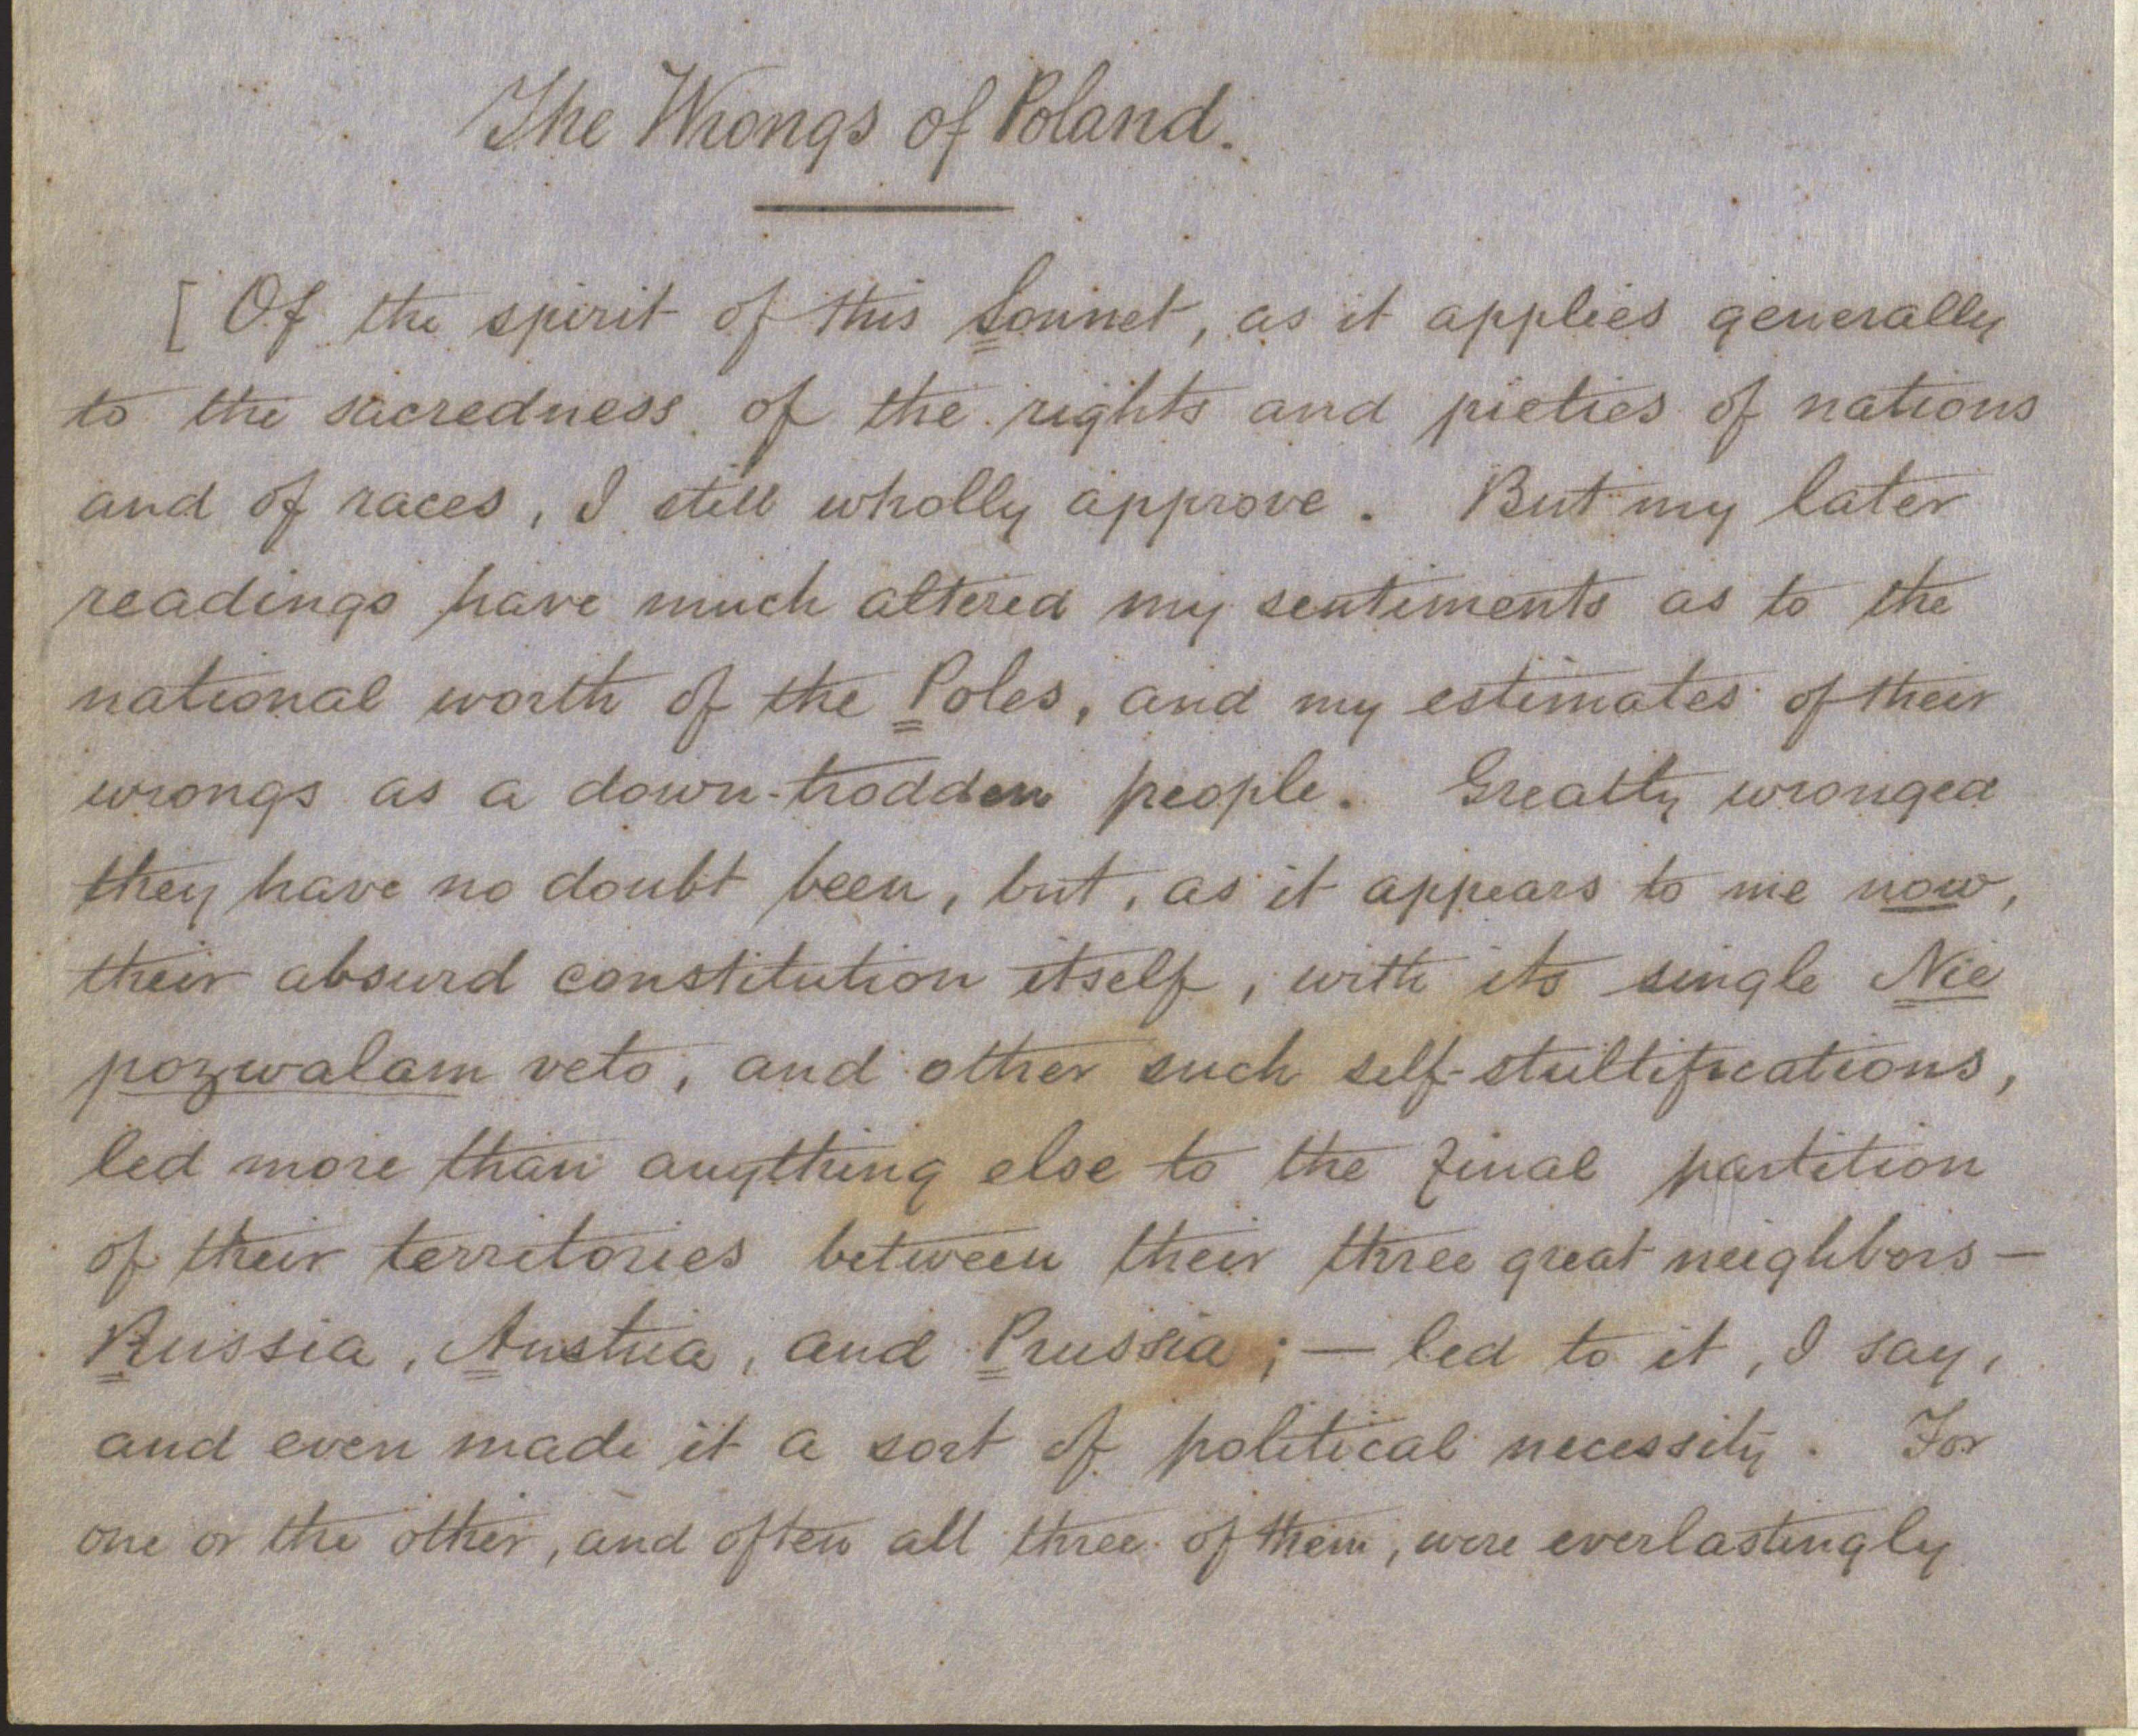 The Wrongs of Poland.
[Of the spirit of this Sonnet, as it applies generally
to the sacredness of the rights and pieties of nations
and of races, I still wholly approve. But my later
readings have much altered my sentiments as to the
national worth of the Poles, and my estimates of their
wrongs as a down-trodden people. Greatly wronged
they have no doubt been, but, as it appears to me now,
their absurd constitution itself, with its single Nie
pozwalam veto, and other such self-stultifications,
led more than anything else to the final partition
of their territories between their three great neighbors —
Russia, Austria, and Prussia; — led to it, I say,
and even made it a sort of political necessity. For
one or the other, and often all three of them, were everlastingly